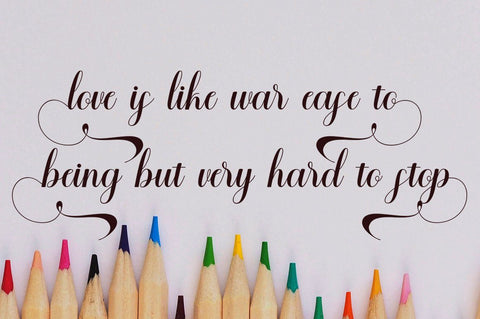 love is like war ease to
being but very hard to stop